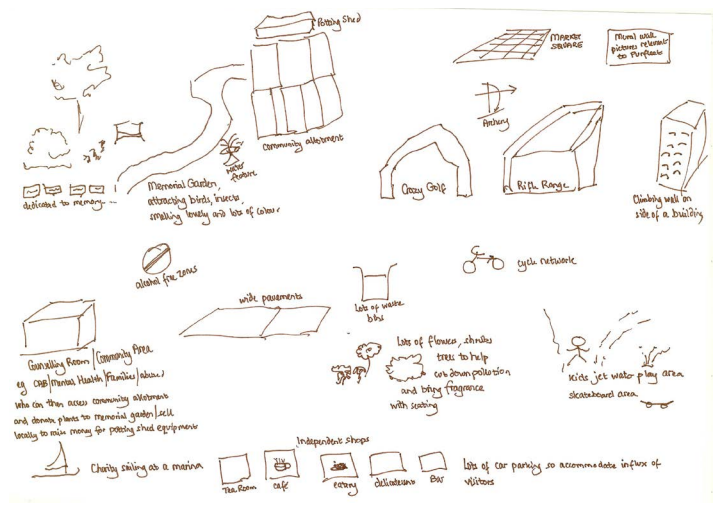 Potting shed
MARKET
SQUARE
Mural wall
pictures relevant
to Purfleet
community allotment
Archery
water
feature
dedicated to memory
Memorial Garden,
attracting birds, insects,
smelling lovely and lots of colour
Crazy Golf
Rifle Range
Climbing wall on
side of a building
alcohol free zones
cycle network
wide pavements
Lots of waste
bins
Counselling Room / Community Area
eg CAB/Mental Health/Families/abuse/
who can then access community allotment
and donate plants to memorial garden/sell
locally to raise money for potting shed equipment
Lots of flowers, shrubs
trees to help
cut down pollution
and bring fragrance
with seating
kids jet water play area
skateboard area
Charity sailing at a marina
Independent shops
Tea Room
café
eatery
delicatessen
Bar
Lots of car parking so accommodate influx of
visitors